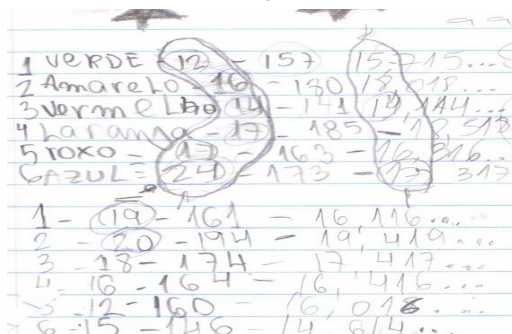 99
1 VERDE - 12 - 157 15,715...
2 Amarelo - 16 - 180 18,018...
3 Vermelho 14 - 141 14,144...
4 Laranja - 17 - 185 - 18,518
5 roxo = 17 - 163 - 16,316...
6 AZUL = 24 - 173 - 17,317
1 - 19 - 161 - 16,116...
2 - 20 - 194 - 19,419...
3 - 18 - 174 - 17,417...
4 - 16 - 164 - 16,416...
5 - 12 - 160 - 16,016...
6 - 15 - 146 - 14,614...